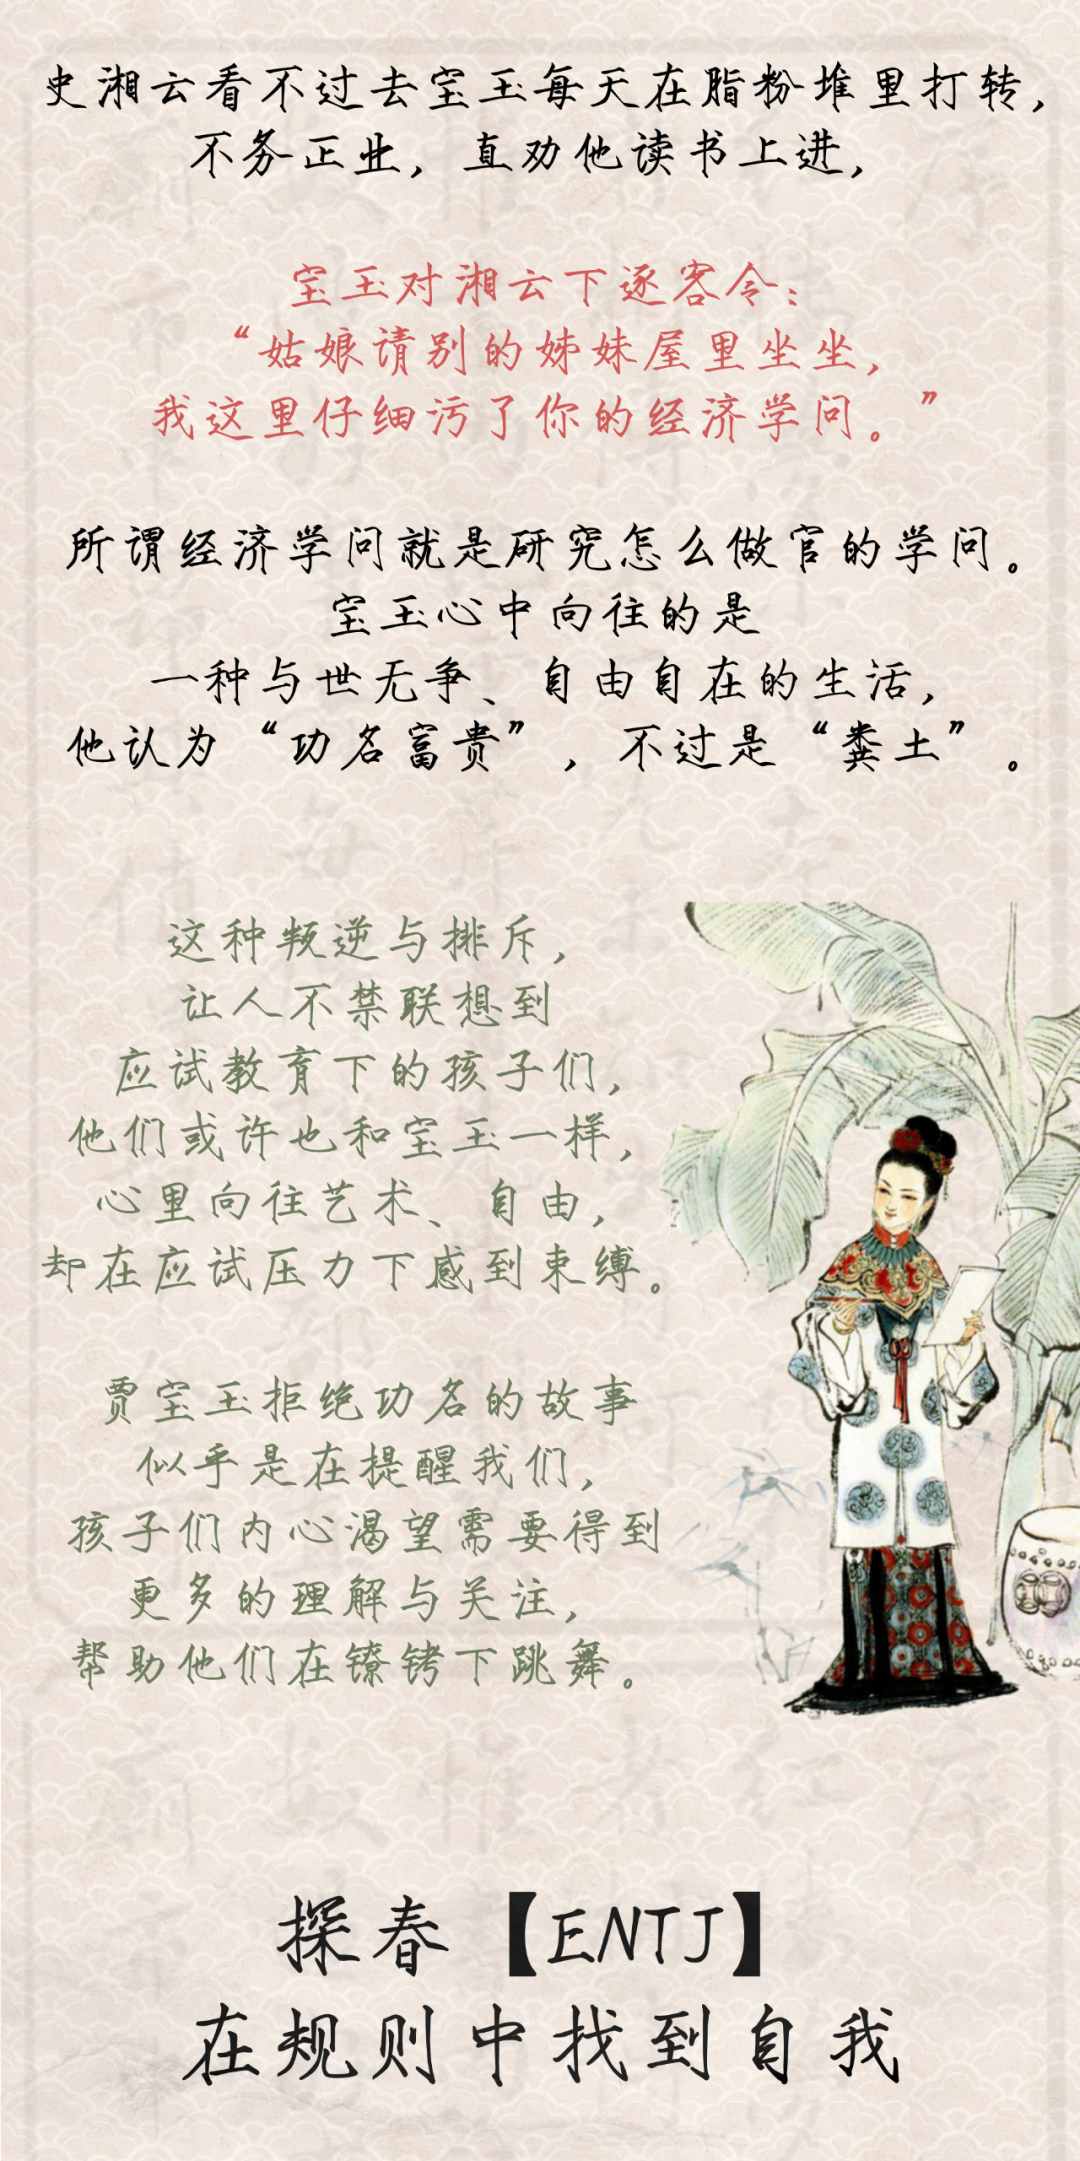 史湘云看不过去宝玉每天在脂粉堆里打转，
不务正业，直劝他读书上进，
宝玉对湘云下逐客令：
“姑娘请别的姊妹屋里坐坐，
我这里仔细污了你的经济学问。”
所谓经济学问就是研究怎么做官的学问。
宝玉心中向往的是
一种与世无争、自由自在的生活，
他认为“功名富贵”，不过是“粪土”。
这种叛逆与排斥，
让人不禁联想到
应试教育下的孩子们，
他们或许也和宝玉一样，
心里向往艺术、自由，
却在应试压力下感到束缚。
贾宝玉拒绝功名的故事
似乎是在提醒我们，
孩子们内心渴望需要得到
更多的理解与关注，
帮助他们在镣铐下跳舞。
探春【ENTJ】
在规则中找到自我